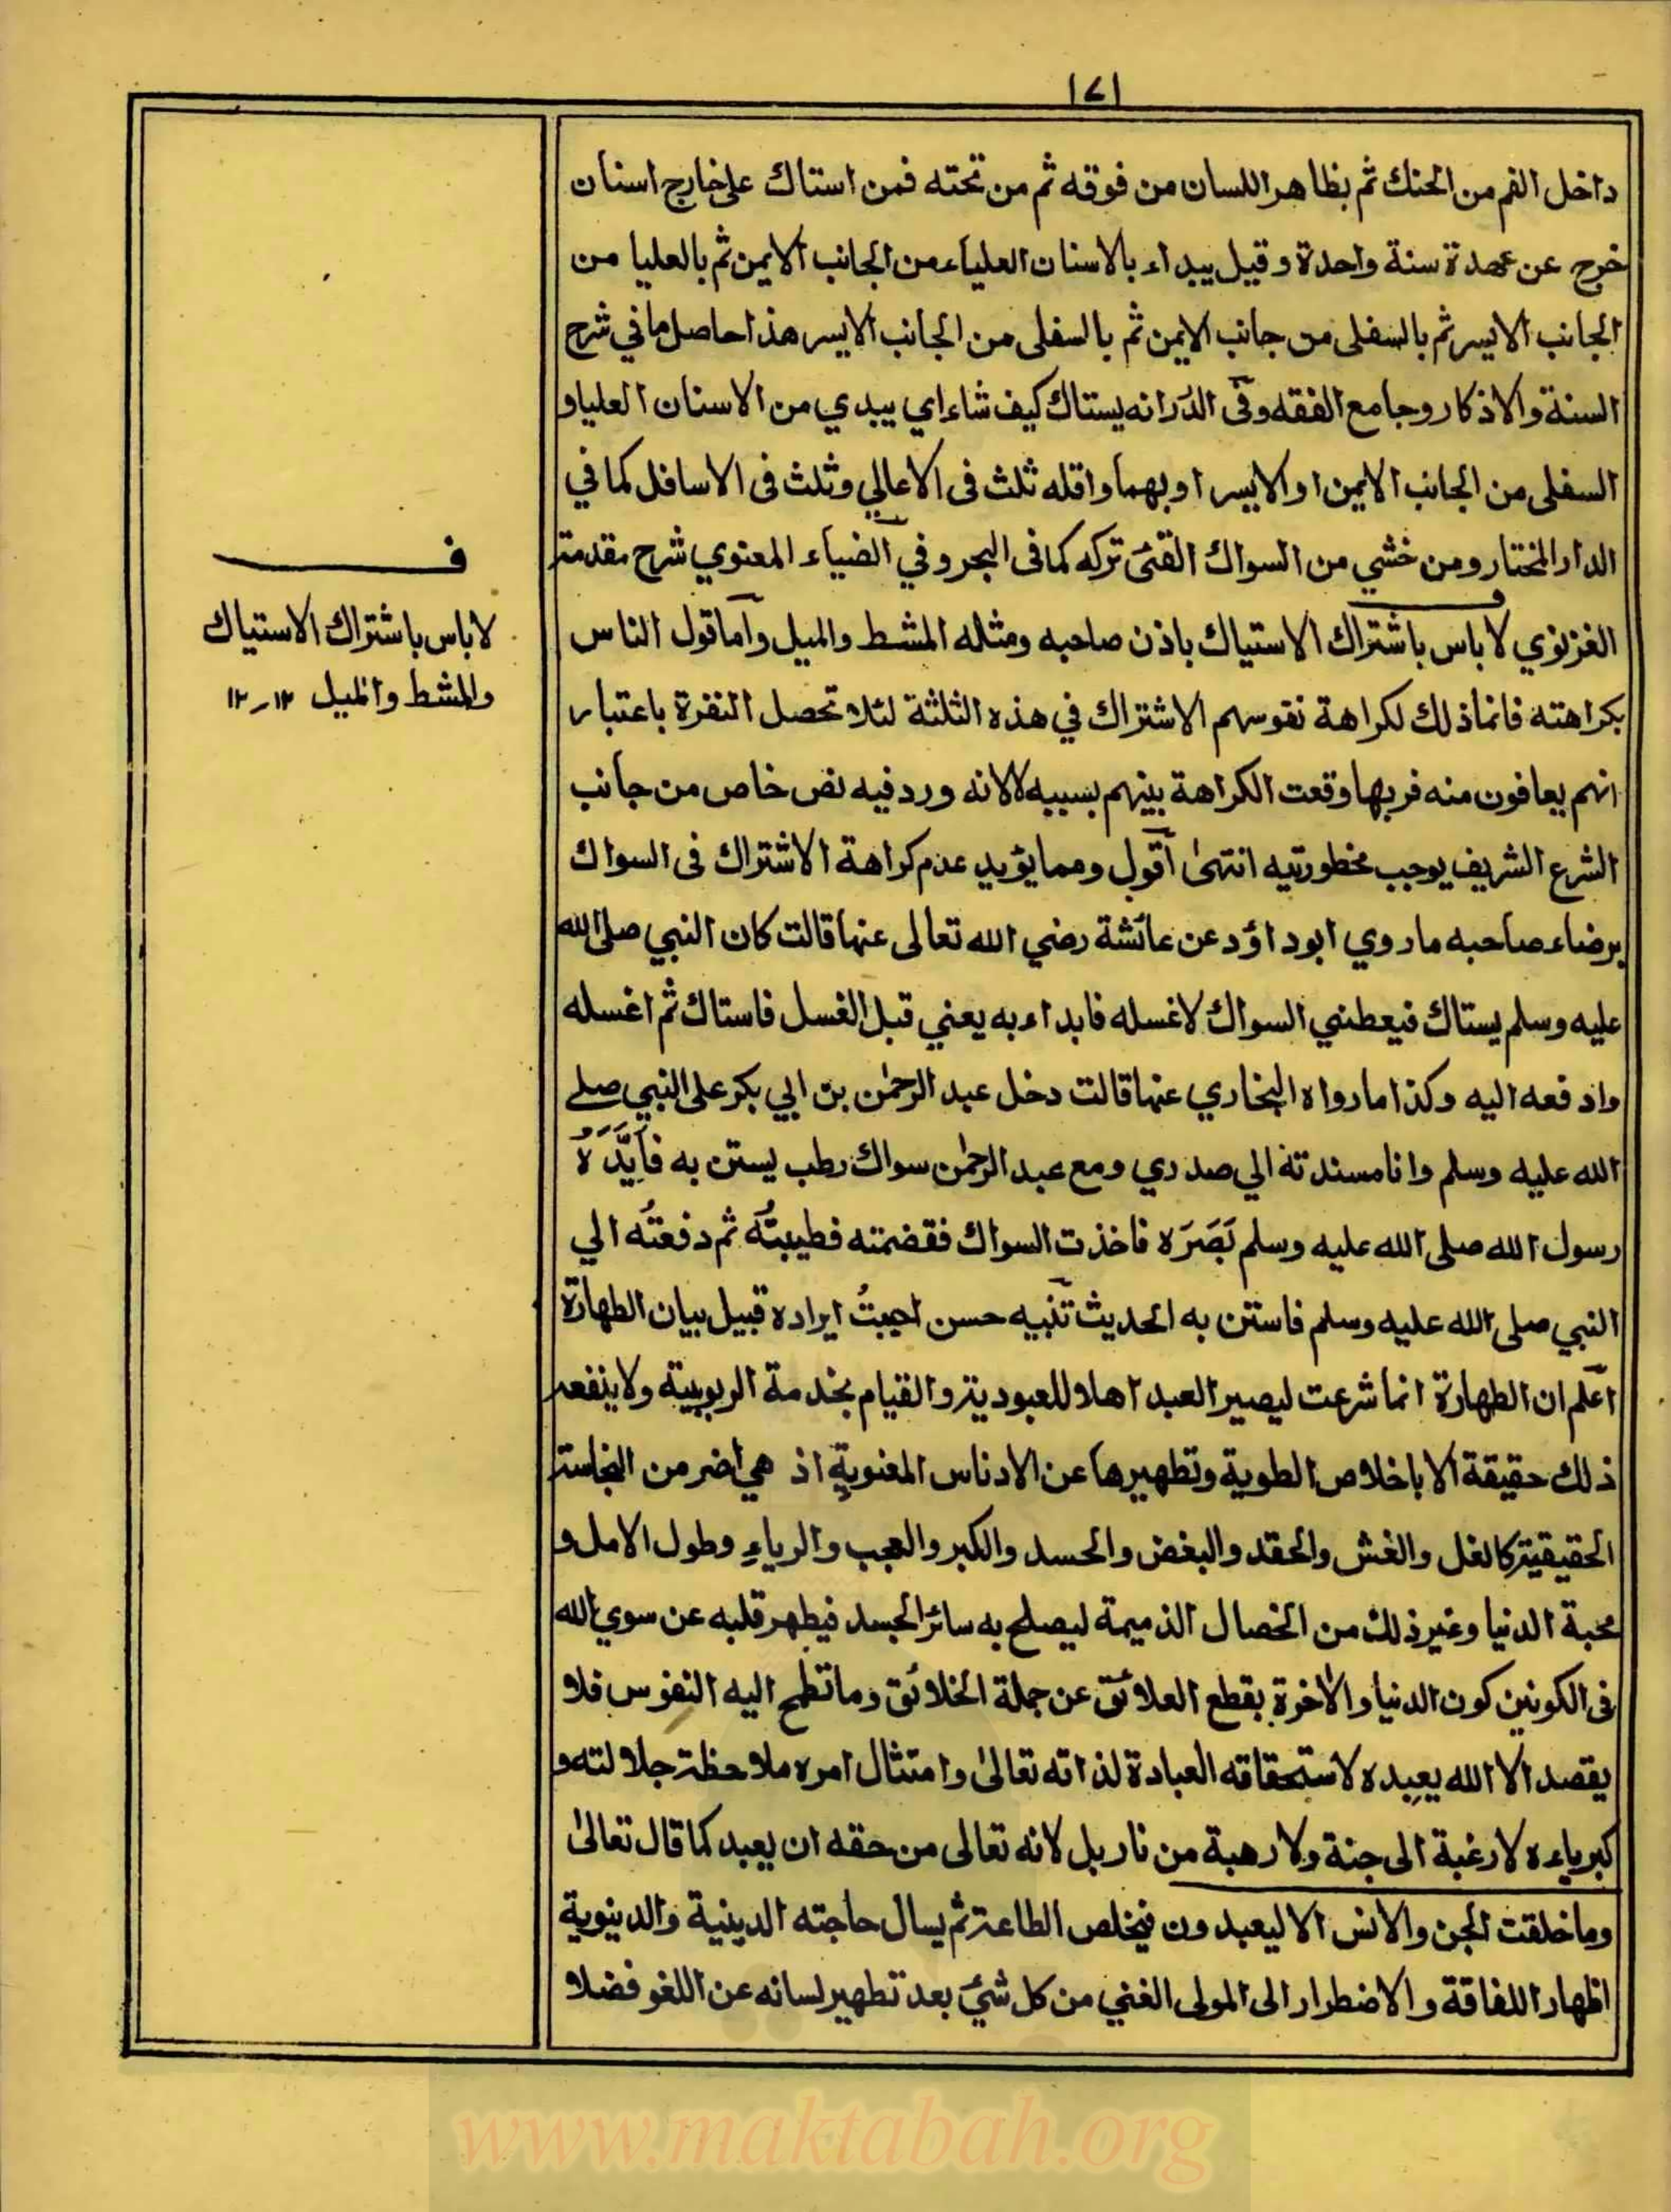 ١٤١
داخل الفم من الحنك ثم بظاهر اللسان من فوقه ثم من تحته فمن استاك على خارج اسنان
خرج عن عهدة سنة واحدة وقيل يبداء بالاسنان العلياء من الجانب الايمن ثم بالعليا من
الجانب الايسر ثم بالسفلى من جانب الايمن ثم بالسفلى من الجانب الايسر هذا حاصل ما في شرح
السنة والاذكار وجامع الفقه وفى الدر انه يستاك كيف شاء اي يبدي من الاسنان العليا و
السفلى من الجانب الايمن او الايسر او بهما واقله ثلث فى الاعالي وثلث فى الاسافل كما في
الدار المختار ومن خشي من السواك القئ تركه كما فى البحر وفي الضياء المعنوي شرح مقدمة
الغزنوي لا باس باشتراك الاستياك باذن صاحبه ومثله المشط والميل واما قول الناس
بكراهته فانما ذلك لكراهة نفوسهم الاشتراك في هذه الثلثة لئلا تحصل النفرة باعتبار
انهم يعافون منه فربها وقعت الكراهة بينهم بسببه لا لانه ورد فيه نص خاص من جانب
الشرع الشريف يوجب محظورتيه انتهى اقول ومما يؤيد عدم كراهة الاشتراك فى السواك
برضاء صاحبه ما روي ابو داؤد عن عائشة رضي الله تعالى عنها قالت كان النبي صلى الله
عليه وسلم يستاك فيعطني السواك لاغسله فابداء به يعني قبل الغسل فاستاك ثم اغسله
وادفعه اليه وكذا ما رواه البخاري عنها قالت دخل عبد الرحمن بن ابي بكر على النبي صلے
الله عليه وسلم وانا مسندته الي صدري ومع عبد الرحمن سواك رطب يستن به فَاَبَدَّهُ
رسول الله صلى الله عليه وسلم بَصَرَه فاخذت السواك فقضمته فطيبتُه ثم دفعتُه الي
النبي صلى الله عليه وسلم فاستن به الحديث تنبيه حسن احببتُ ايراده قبيل بيان الطهارة
اعلم ان الطهارة انما شرعت ليصير العبد اهلا للعبودية والقيام بخدمة الربوبية ولا ينفعه
ذلك حقيقة الا باخلاص الطوية وتطهيرها عن الادناس المعنوية اذ هي اضر من النجاسة
الحقيقية كالغل والغش والحقد والبغض والحسد والكبر والعجب والرياء وطول الامل و
محبة الدنيا وغير ذلك من الخصال الذميمة ليصلح به سائر الجسد فيطهر قلبه عن سوي الله
فى الكونين كون الدنيا والآخرة بقطع العلائق عن جملة الخلائق وما تطمح اليه النفوس فلا
يقصد الا الله يعبده لاستحقاقه العبادة لذاته تعالى وامتثال امره ملاحظة جلالته و
كبرياءه لا رغبة الى جنة ولا رهبة من نار بل لانه تعالى من حقه ان يعبد كما قال تعالى
وما خلقت الجن والانس الا ليعبدون فيخلص الطاعة ثم يسال حاجته الدينية والدينوية
اظهار اللفاقة والاضطرار الى المولى الغني من كل شئ بعد تطهير لسانه عن اللغو فضلا
ف
لا باس باشتراك الاستياك
والمشط والميل ١٢-١٢
www.maktabah.org